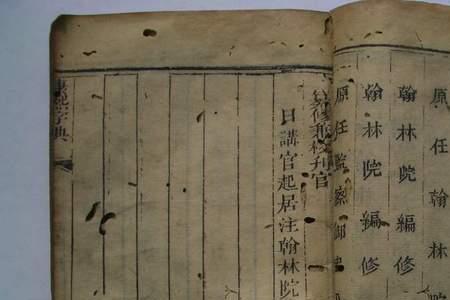 原任翰林院
翰林院編修
翰林院編修
原任監察御史
纂修兼校刊官
日講官起居注翰林院
康熙字典